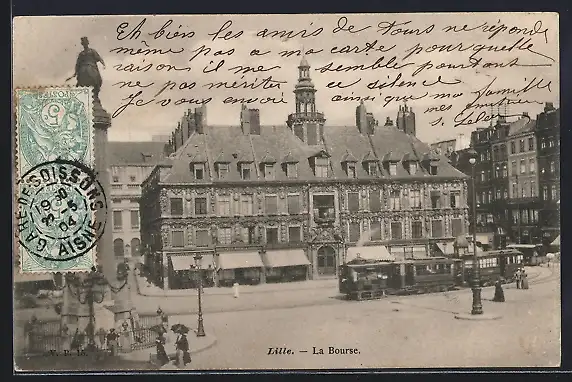 Eh bien les amis de Tours ne réponde
même pas a ma carte pourquelle
raison il me semble pourtant
ne pas mériter ce silence
je vous envoi ainsi que ma famille
mes
5
GARE DE SOISSONS
AISNE
04
Lille. — La Bourse.